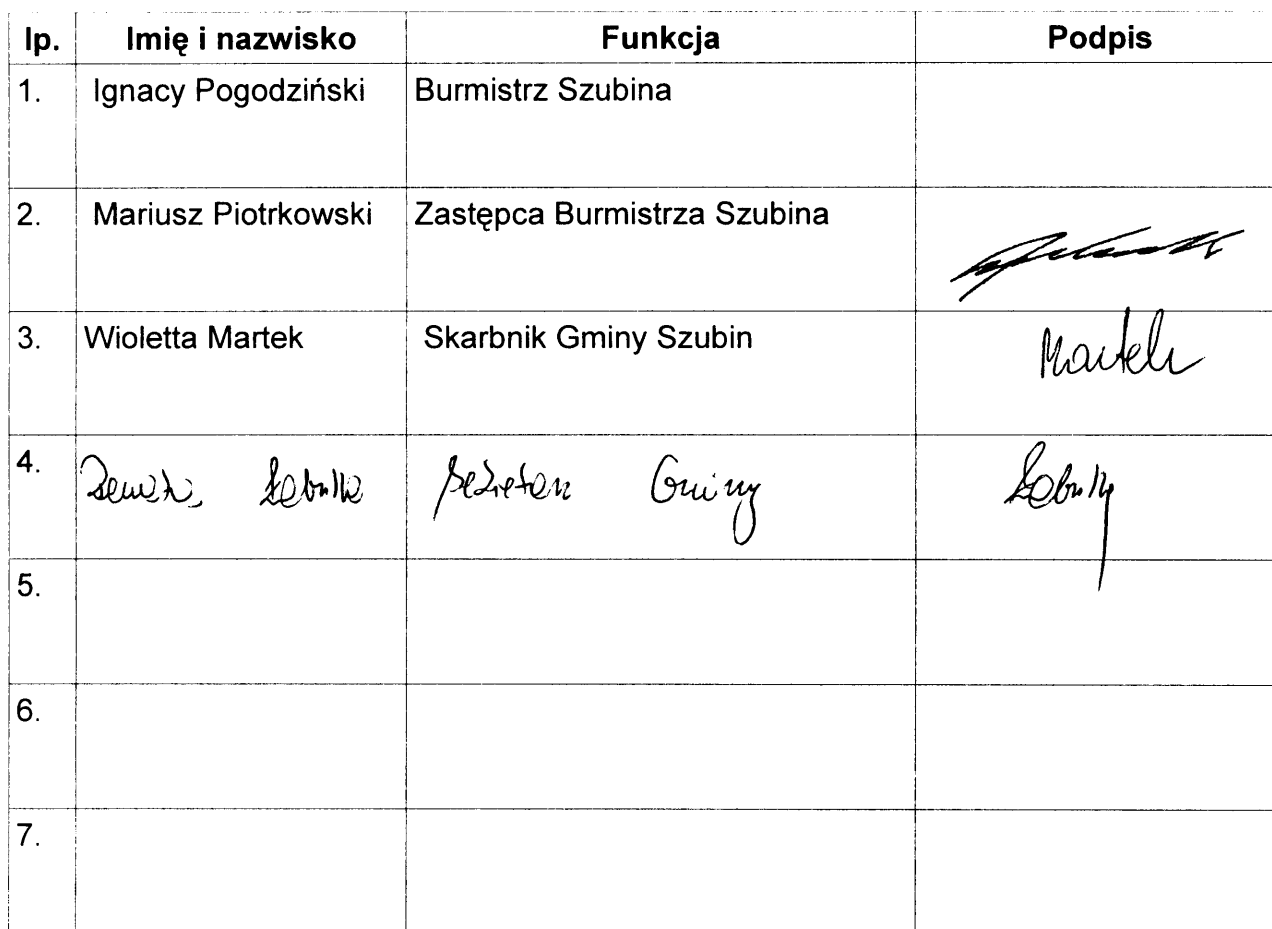 lp. Imię i nazwisko Funkcja Podpis
1. Ignacy Pogodziński Burmistrz Szubina
2. Mariusz Piotrkowski Zastępca Burmistrza Szubina
3. Wioletta Martek Skarbnik Gminy Szubin Martek
4. Sekretarz Gminy
5.
6.
7.